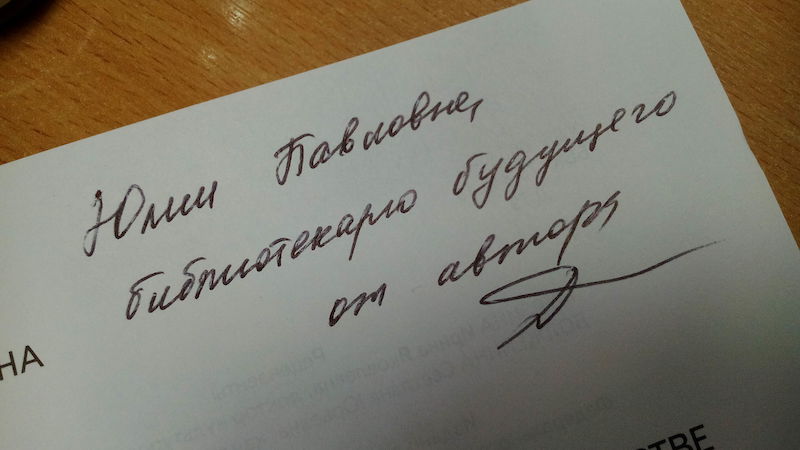 Юлии Павловне,
библиотекарю будущего
от автора
НА
СТВЕ